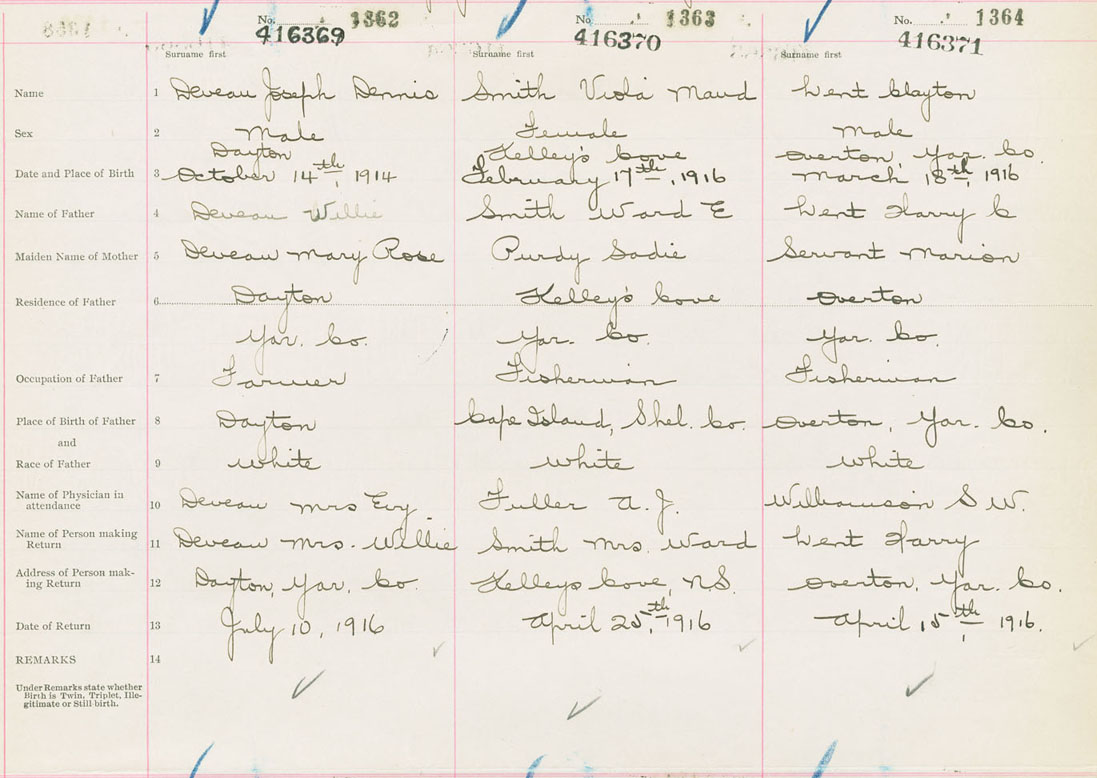 No. 1362 No. 1363 No. 1364
416369 416370 416371
Surname first Surname first Surname first
Name 1 Deveau Joseph Dennis Smith Viola Maud Went Clayton
Sex 2 Male Female Male
Dayton Kelley's Cove Overton, Yar. Co.
Date and Place of Birth 3 October 14th, 1914 February 17th, 1916 March 18th, 1916
Name of Father 4 Deveau Willie Smith Ward E Went Harry C
Maiden Name of Mother 5 Deveau Mary Rose Purdy Sadie Servant Marion
Residence of Father 6 Dayton Kelley's Cove Overton
Yar. Co. Yar. Co. Yar. Co.
Occupation of Father 7 Farmer Fisherman Fisherman
Place of Birth of Father 8 Dayton Cape Island, Shel. Co. Overton, Yar. Co.
and
Race of Father 9 White White White
Name of Physician in
attendance 10 Deveau Mrs Evy Fuller A. J. Williamson S W.
Name of Person making
Return 11 Deveau Mrs. Willie Smith Mrs. Ward Went Harry
Address of Person mak-
ing Return 12 Dayton, Yar. Co. Kelleys Cove, N.S. Overton, Yar. Co.
Date of Return 13 July 10, 1916 April 25th, 1916 April 15th, 1916.
REMARKS 14
Under Remarks state whether
Birth is Twin, Triplet, Ille-
gitimate or Still-birth.